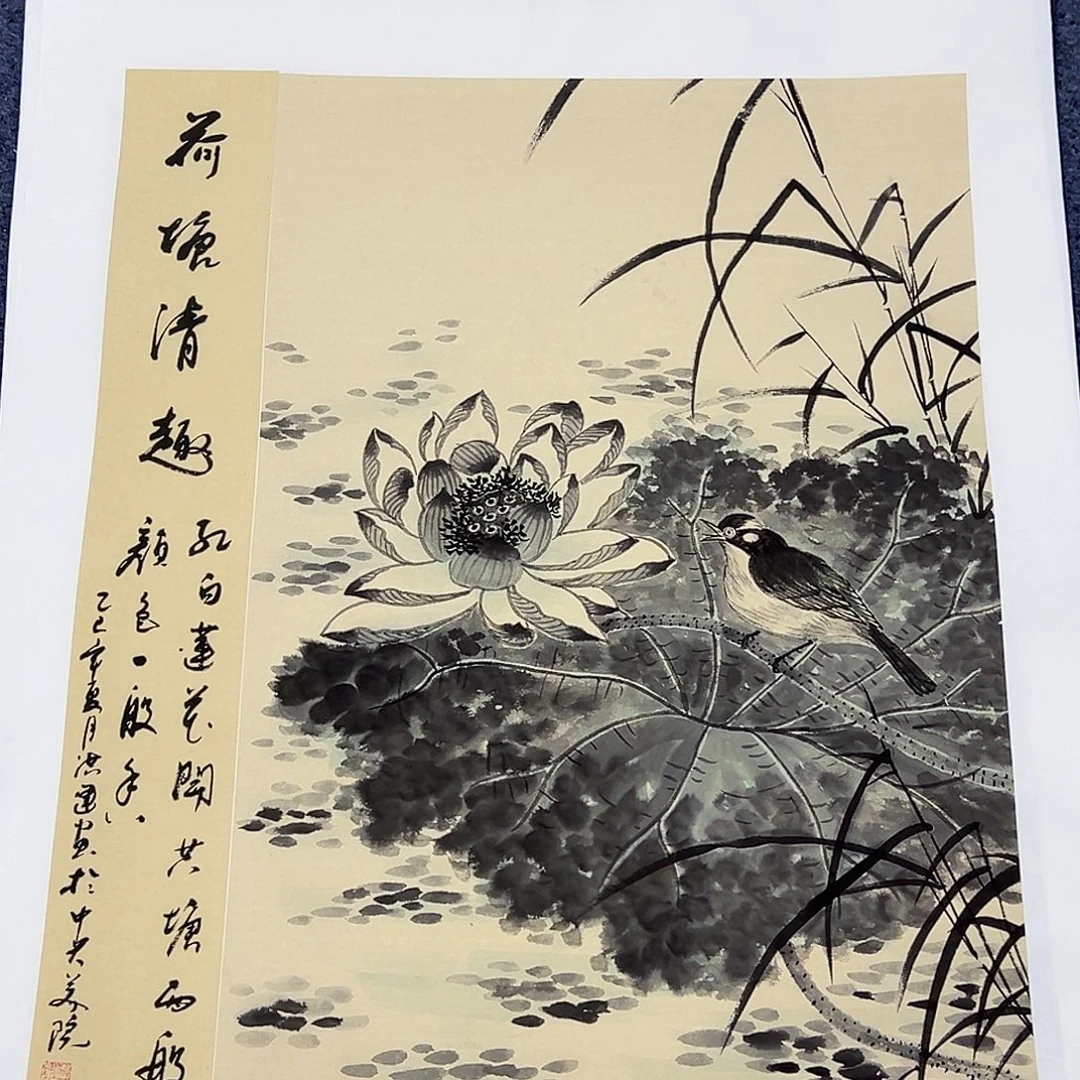 荷塘清趣
红白莲花開共塘两般
颜色一般香
乙巳年夏月洪運画於中央美院